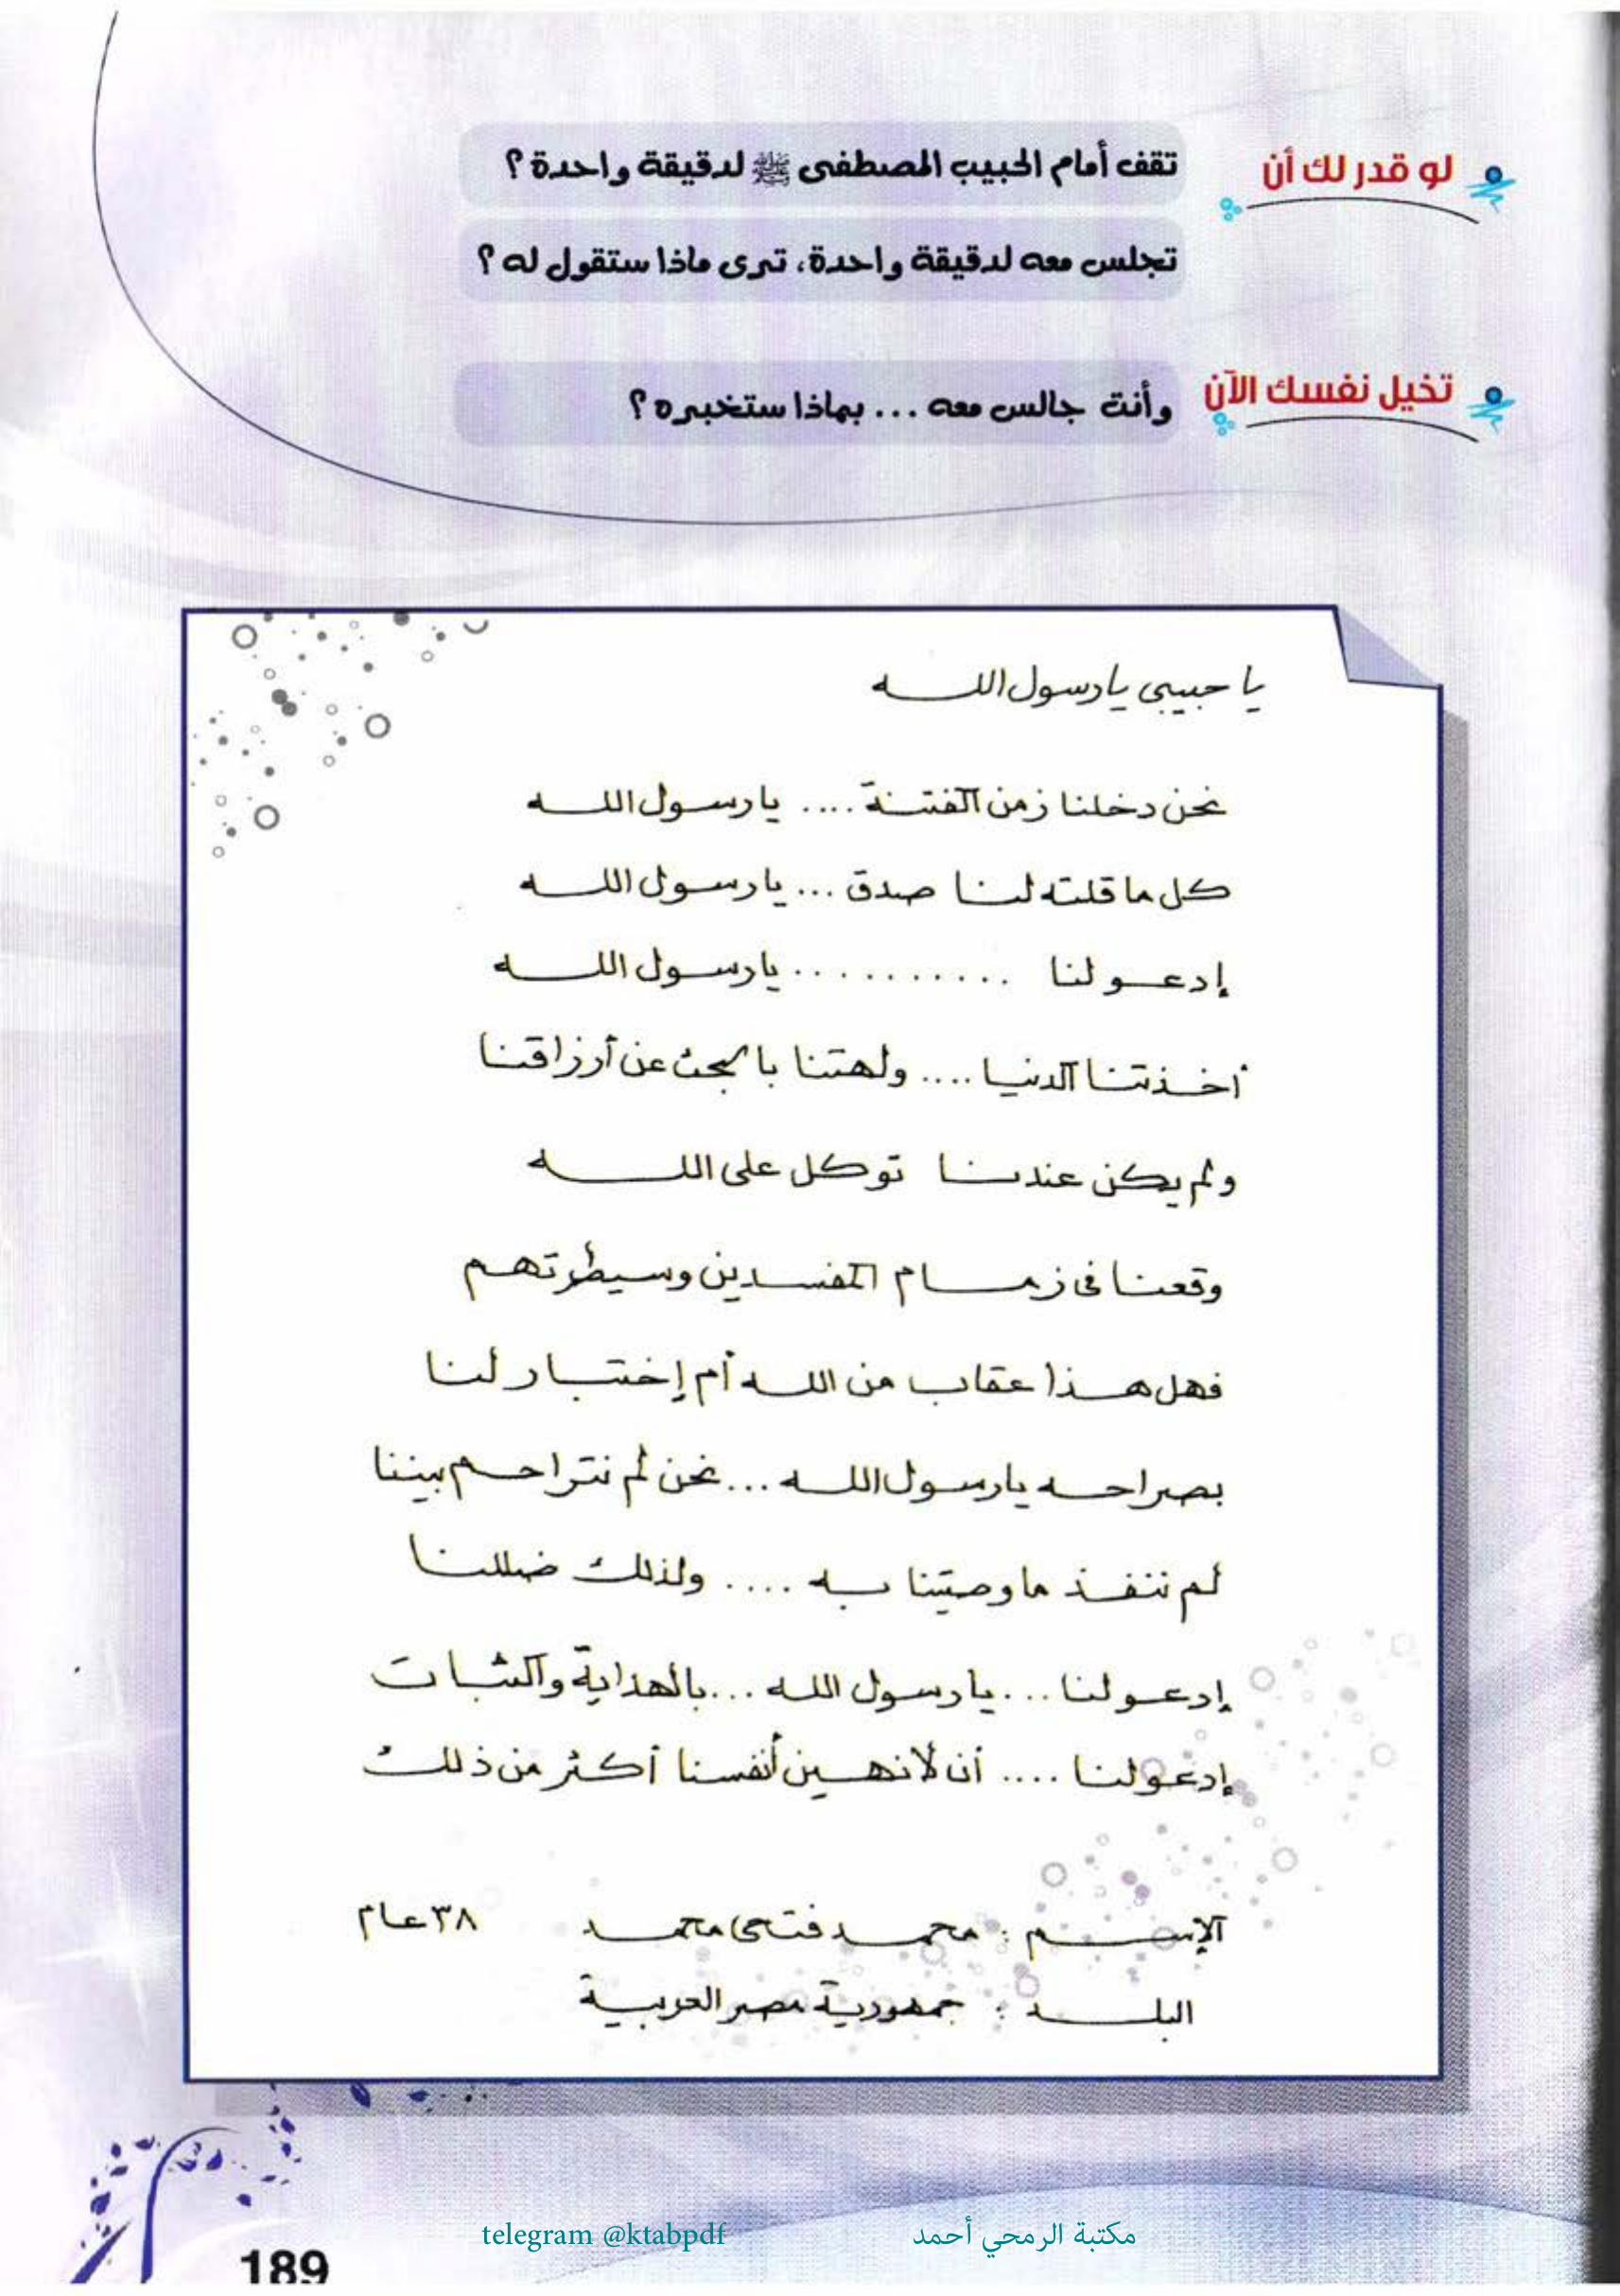 لو قدر لك أن
تقف أمام الحبيب المصطفى ﷺ لدقيقة واحدة؟
تجلس معه لدقيقة واحدة، ترى ماذا ستقول له؟
تخيل نفسك الآن
وأنت جالس معه ... بماذا ستخبره؟
يا حبيبى يا رسول اللـــه
نحن دخلنا زمن الفتنة .... يا رسول اللـه
كل ما قلته لنا صدق ... يا رسول اللـه
إدعو لنا .......... يا رسول اللـه
أخذتنا الدنيا .... ولهتنا بالبحث عن أرزاقنا
ولم يكن عندنا توكل على اللـــه
وقعنا فى زمام المفسدين وسيطرتهم
فهل هذا عقاب من اللـه أم إختبار لنا
بصراحه يا رسول اللـه ... نحن لم نتراحم بيننا
لم ننفذ ما وصيتنا به .... ولذلك ضللنا
إدعو لنا ... يا رسول اللـه ... بالهداية والثبات
إدعو لنا .... أن لا نهين أنفسنا أكثر من ذلك
الإســـم : محمد فتحى محمد ٣٨ عام
البلـــد : جمهورية مصر العربية
telegram @ktabpdf مكتبة الرمحي أحمد
189